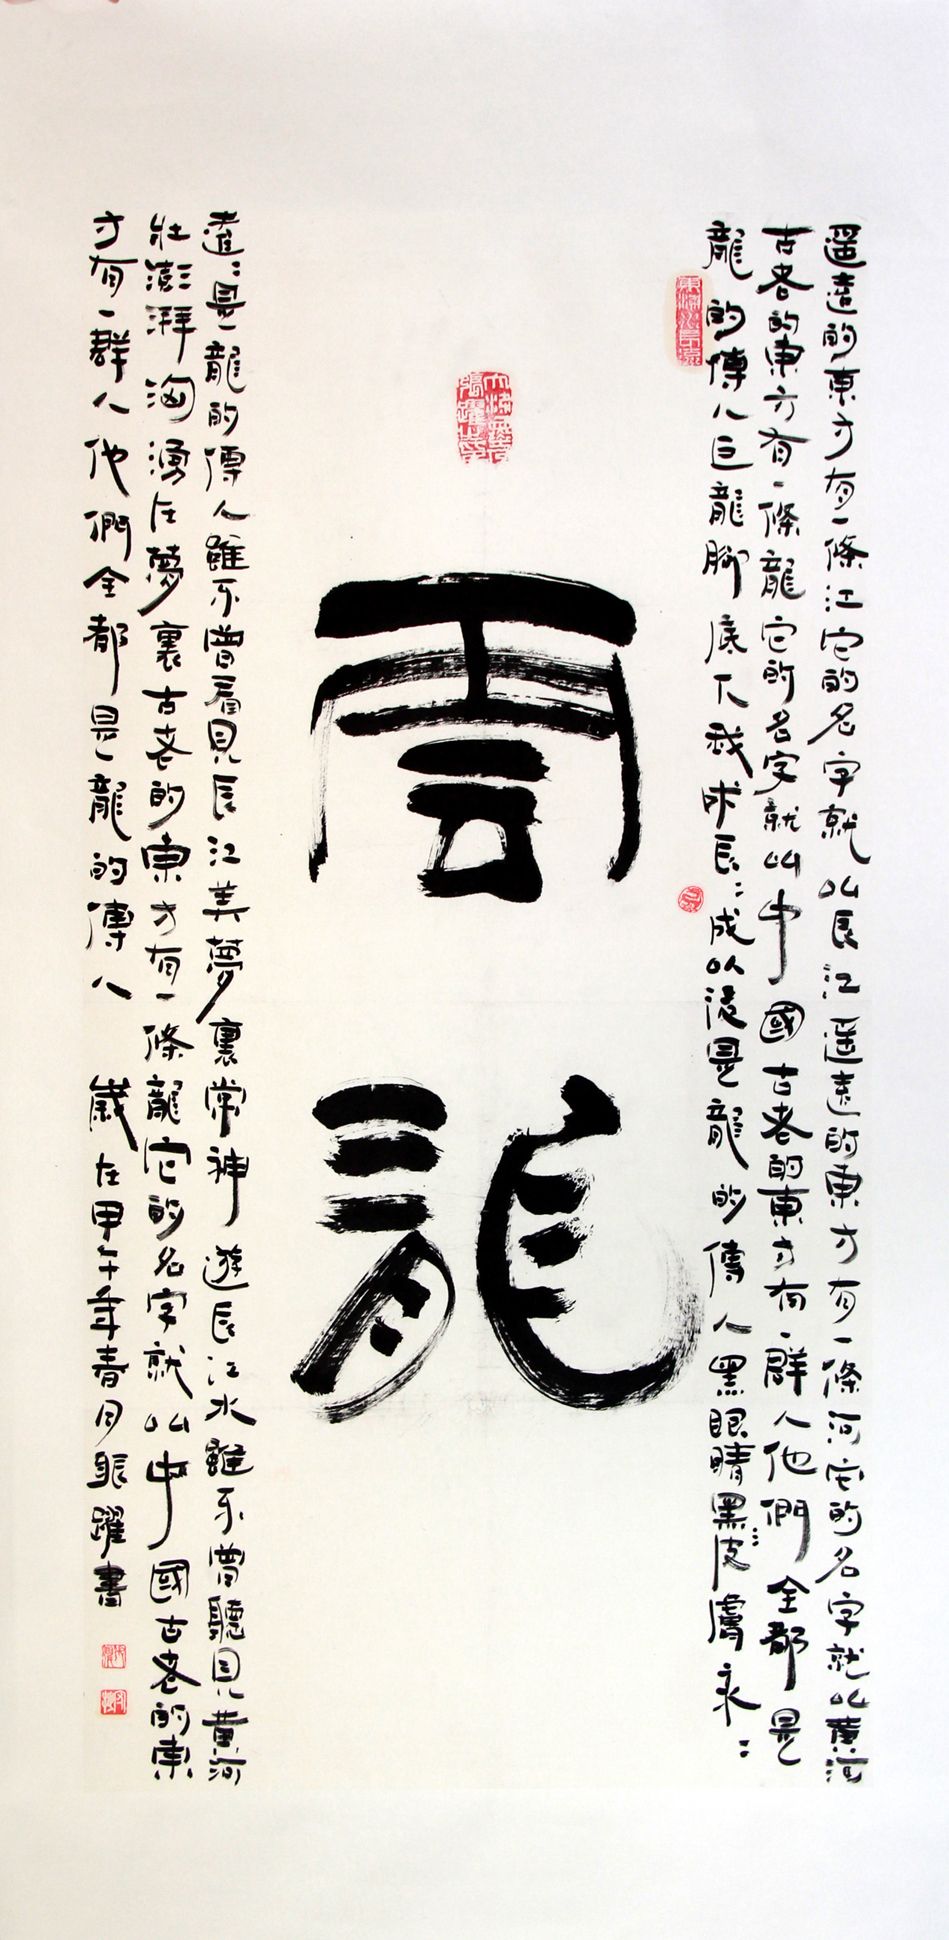 遥遠的東方有一條江它的名字就叫長江遥遠的東方有一條河它的名字就叫黄河
古老的東方有一條龍它的名字就叫中國古老的東方有一群人他們全都是
龍的傳人巨龍脚底下我成長:成以後是龍的傳人黑眼睛黑:皮膚永:
雲龍
遠:是龍的傳人雖不曾看見長江美夢裏常神遊長江水雖不曾聽見黄河
壯澎湃洶湧在夢裏古老的東方有一條龍它的名字就叫中國古老的東
方有一群人他們全都是龍的傳人 歲在甲午年春月張躍書